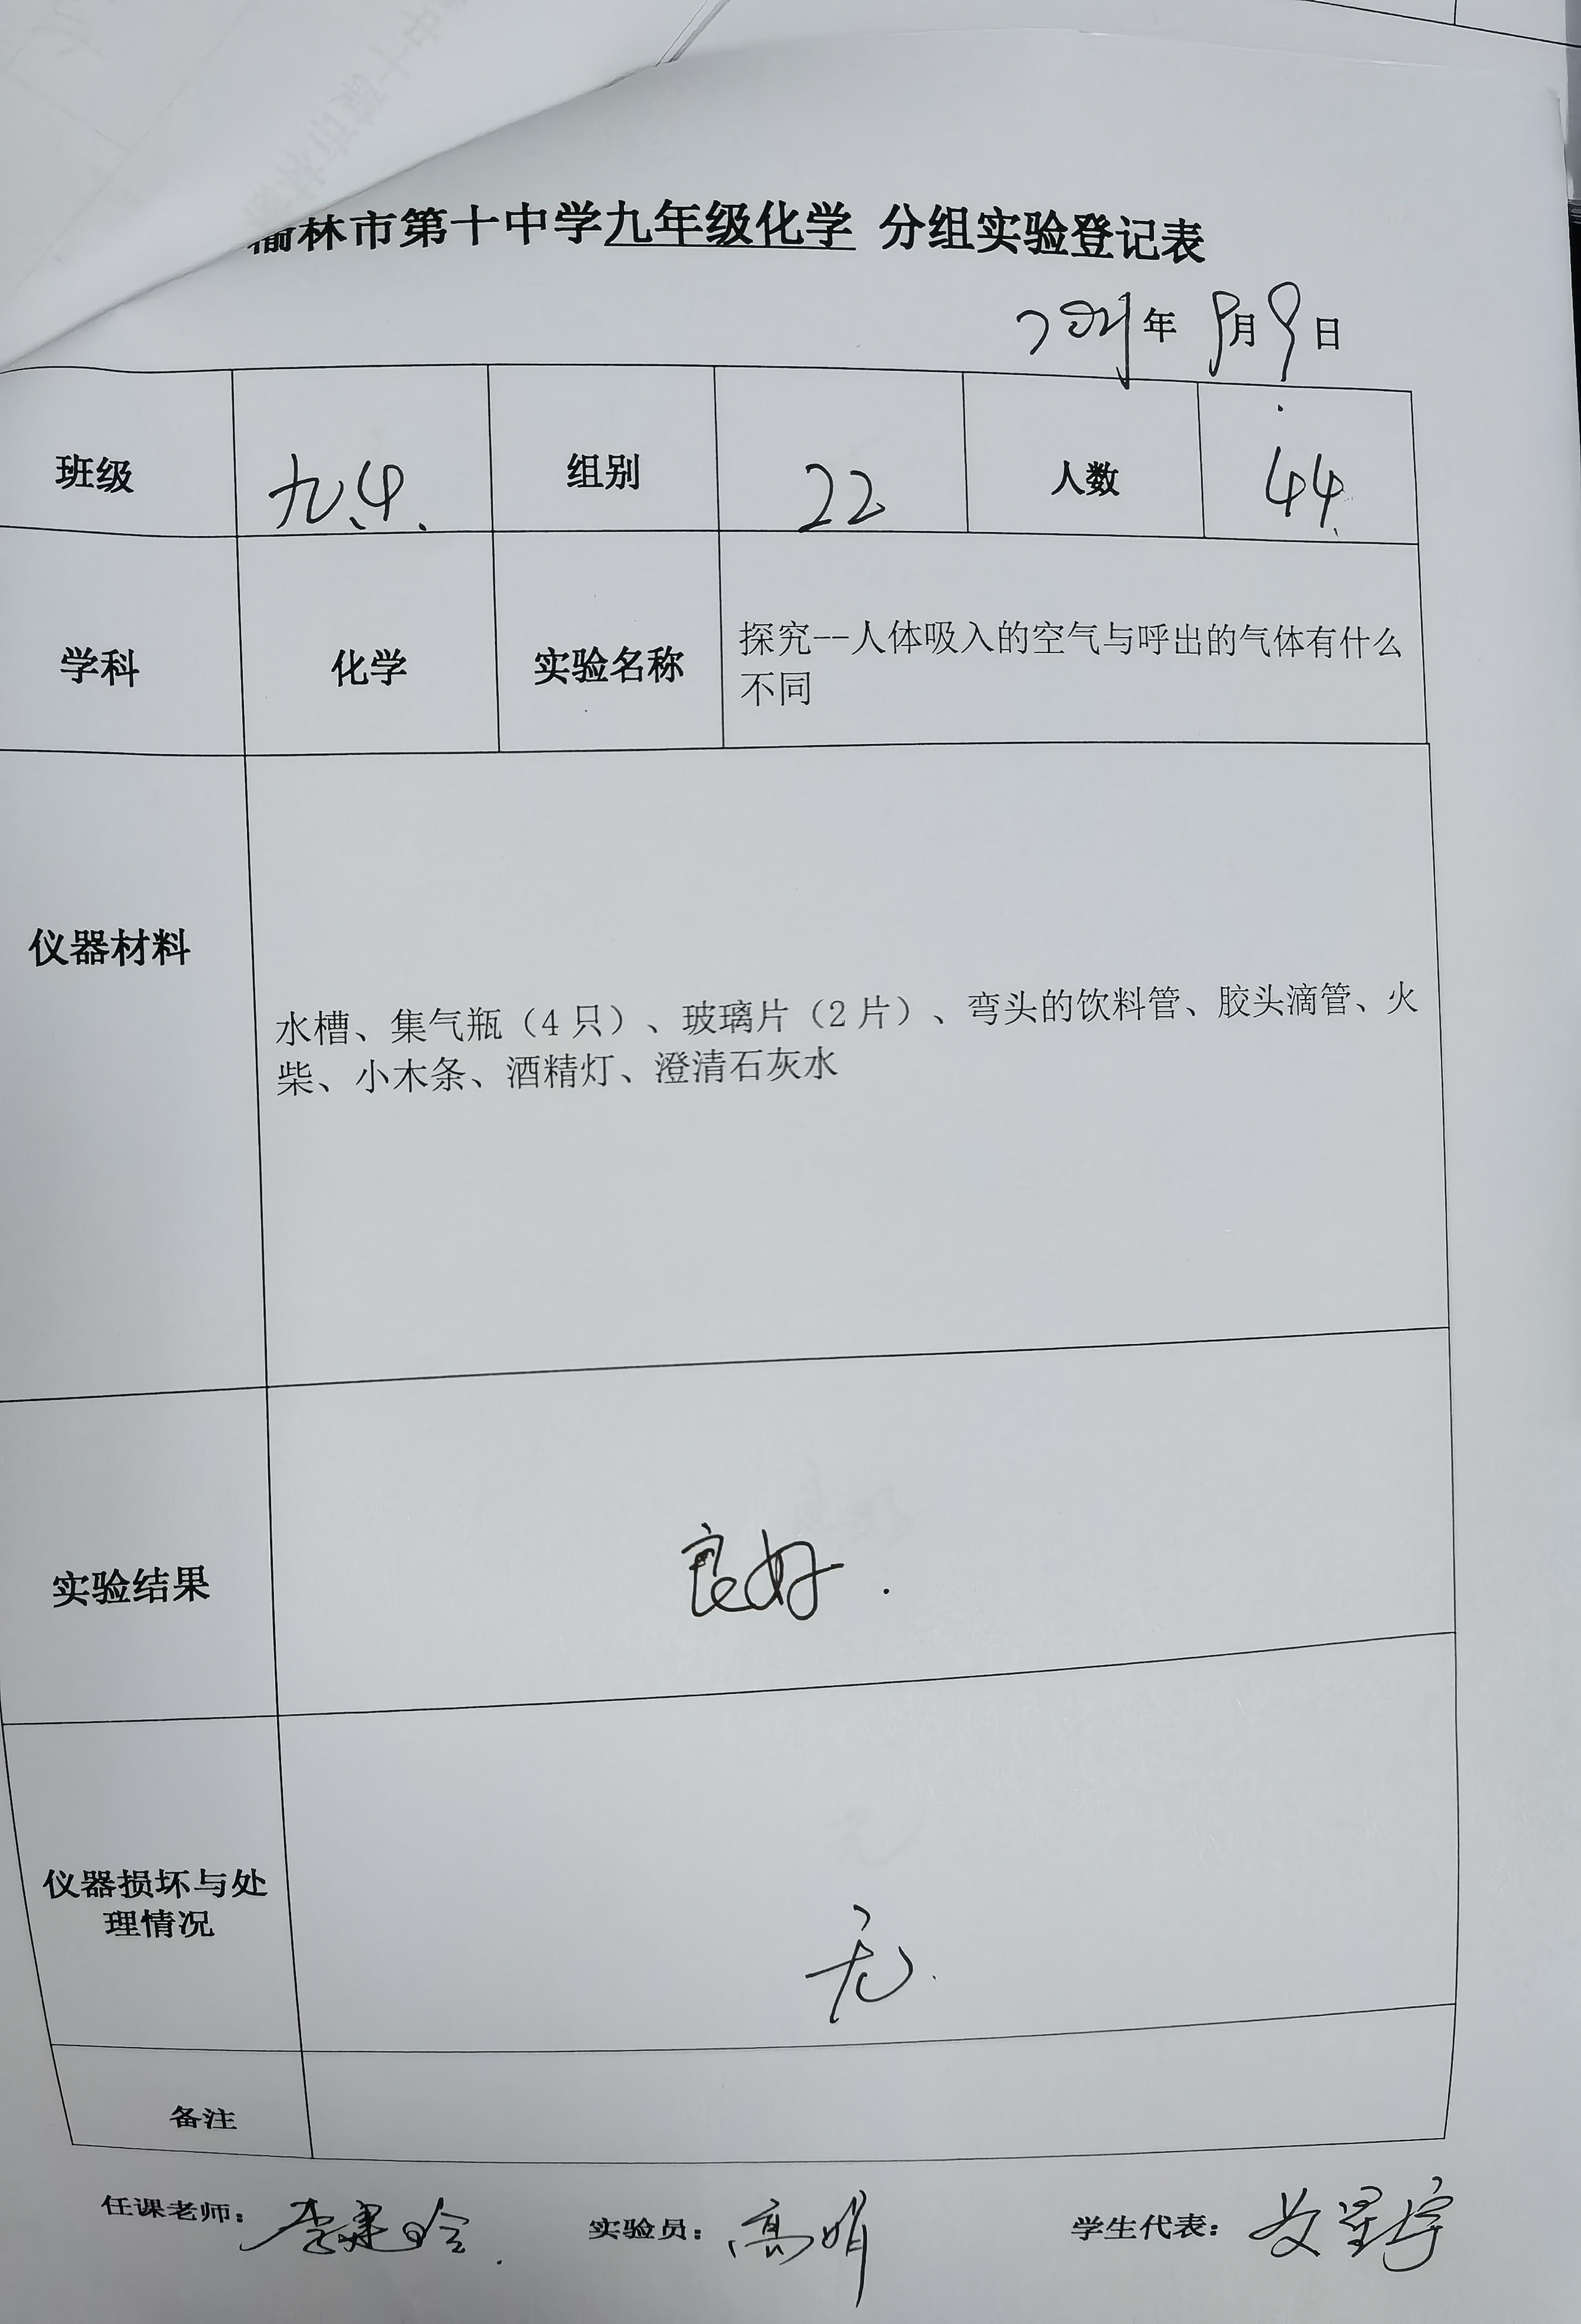 榆林市第十中学九年级化学 分组实验登记表
年 9月9日
班级 九.4. 组别 22 人数 44
学科 化学 实验名称 探究--人体吸入的空气与呼出的气体有什么
不同
仪器材料
水槽、集气瓶（4 只）、玻璃片（2 片）、弯头的饮料管、胶头滴管、火
柴、小木条、酒精灯、澄清石灰水
实验结果 良好.
仪器损坏与处
理情况
无.
备注
任课老师： 实验员：高娟 学生代表：